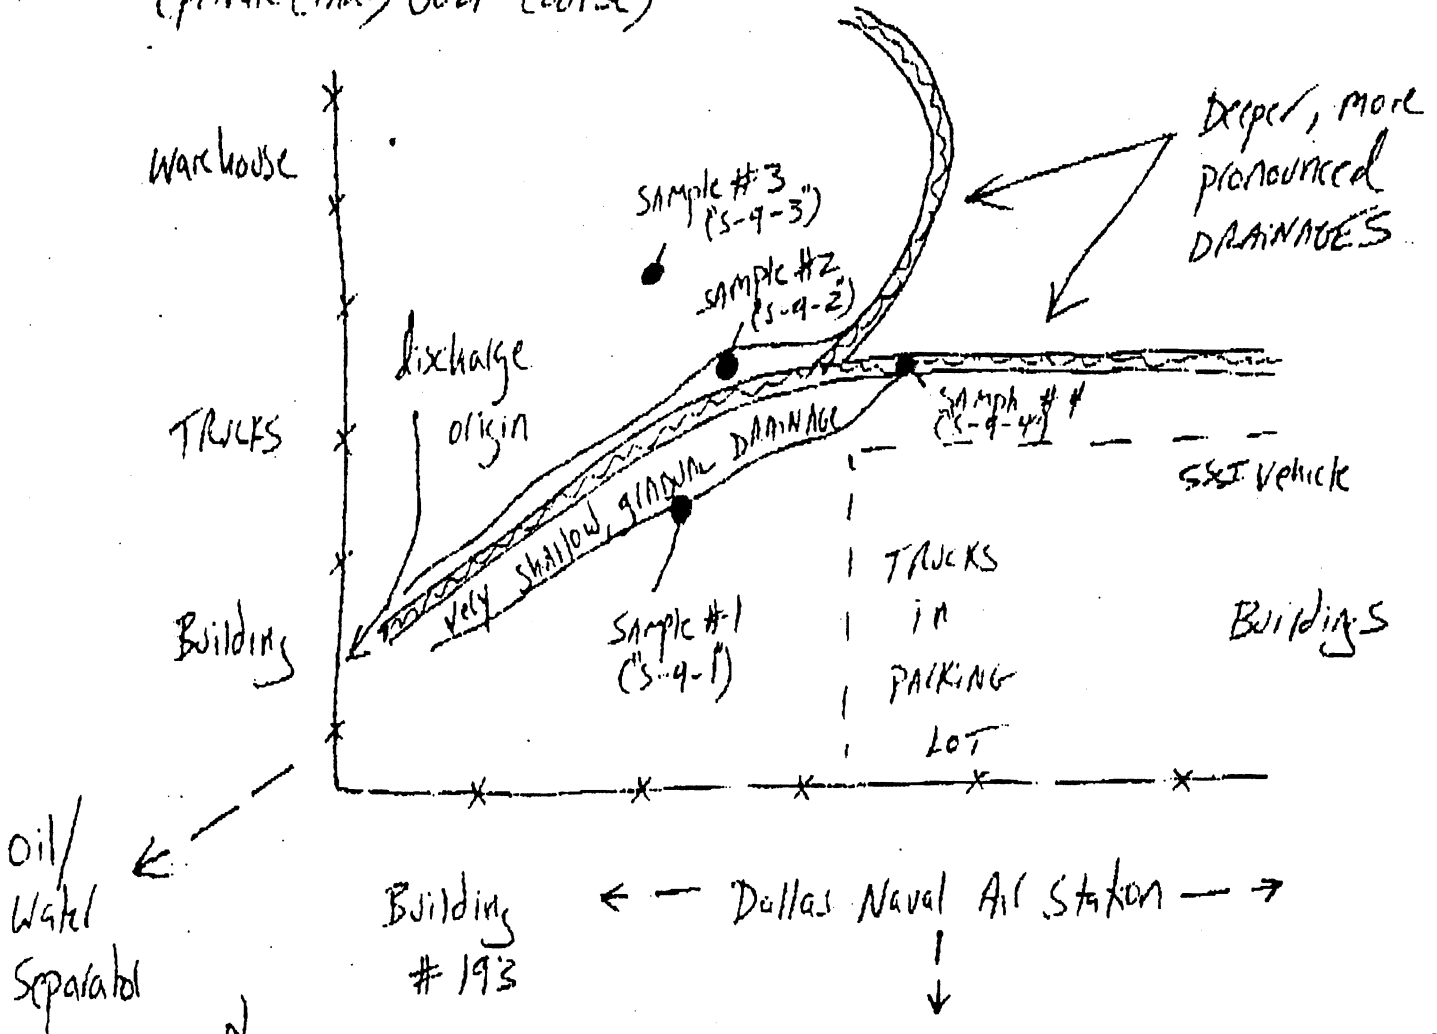 (private (      ) Golf Course)
Warehouse
Deeper, more
pronounced
DRAiNAGES
SAmple # 3
("s-9-3")
SAmple #2
("s-9-2")
discharge
origin
TRUCKS
SAmple # 4
("s-9-4")
SSI Vehicle
very shallow, gradual DRAiNAGE
TRUCKS
in
PARKiNG
LOT
Building
SAmple #1
("s-9-1")
Buildings
Oil/
Water
Separator
Building
# 193
Dallas Naval Air Station
N